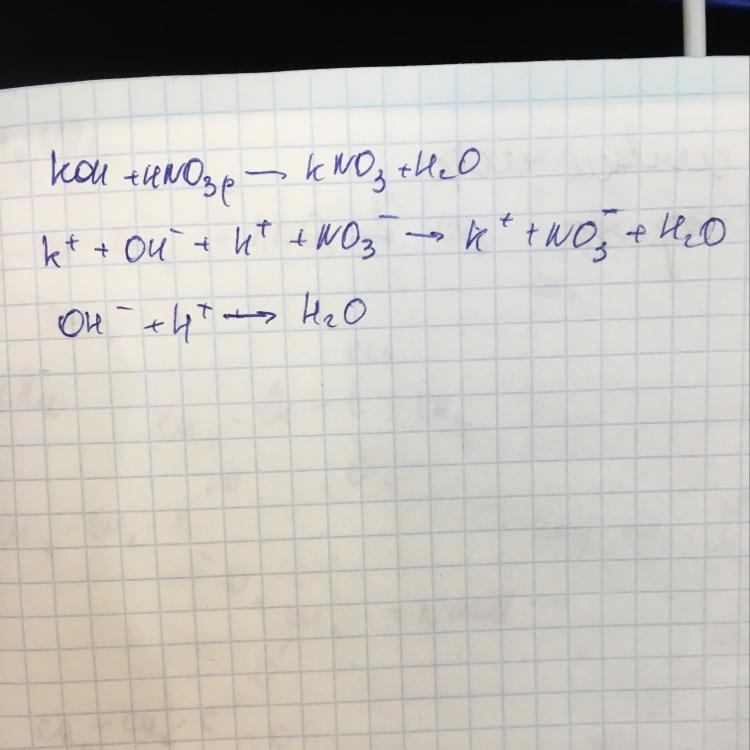 KOH + HNO₃р → KNO₃ + H₂O
K⁺ + OH⁻ + H⁺ + NO₃⁻ → K⁺ + NO₃⁻ + H₂O
OH⁻ + H⁺ → H₂O